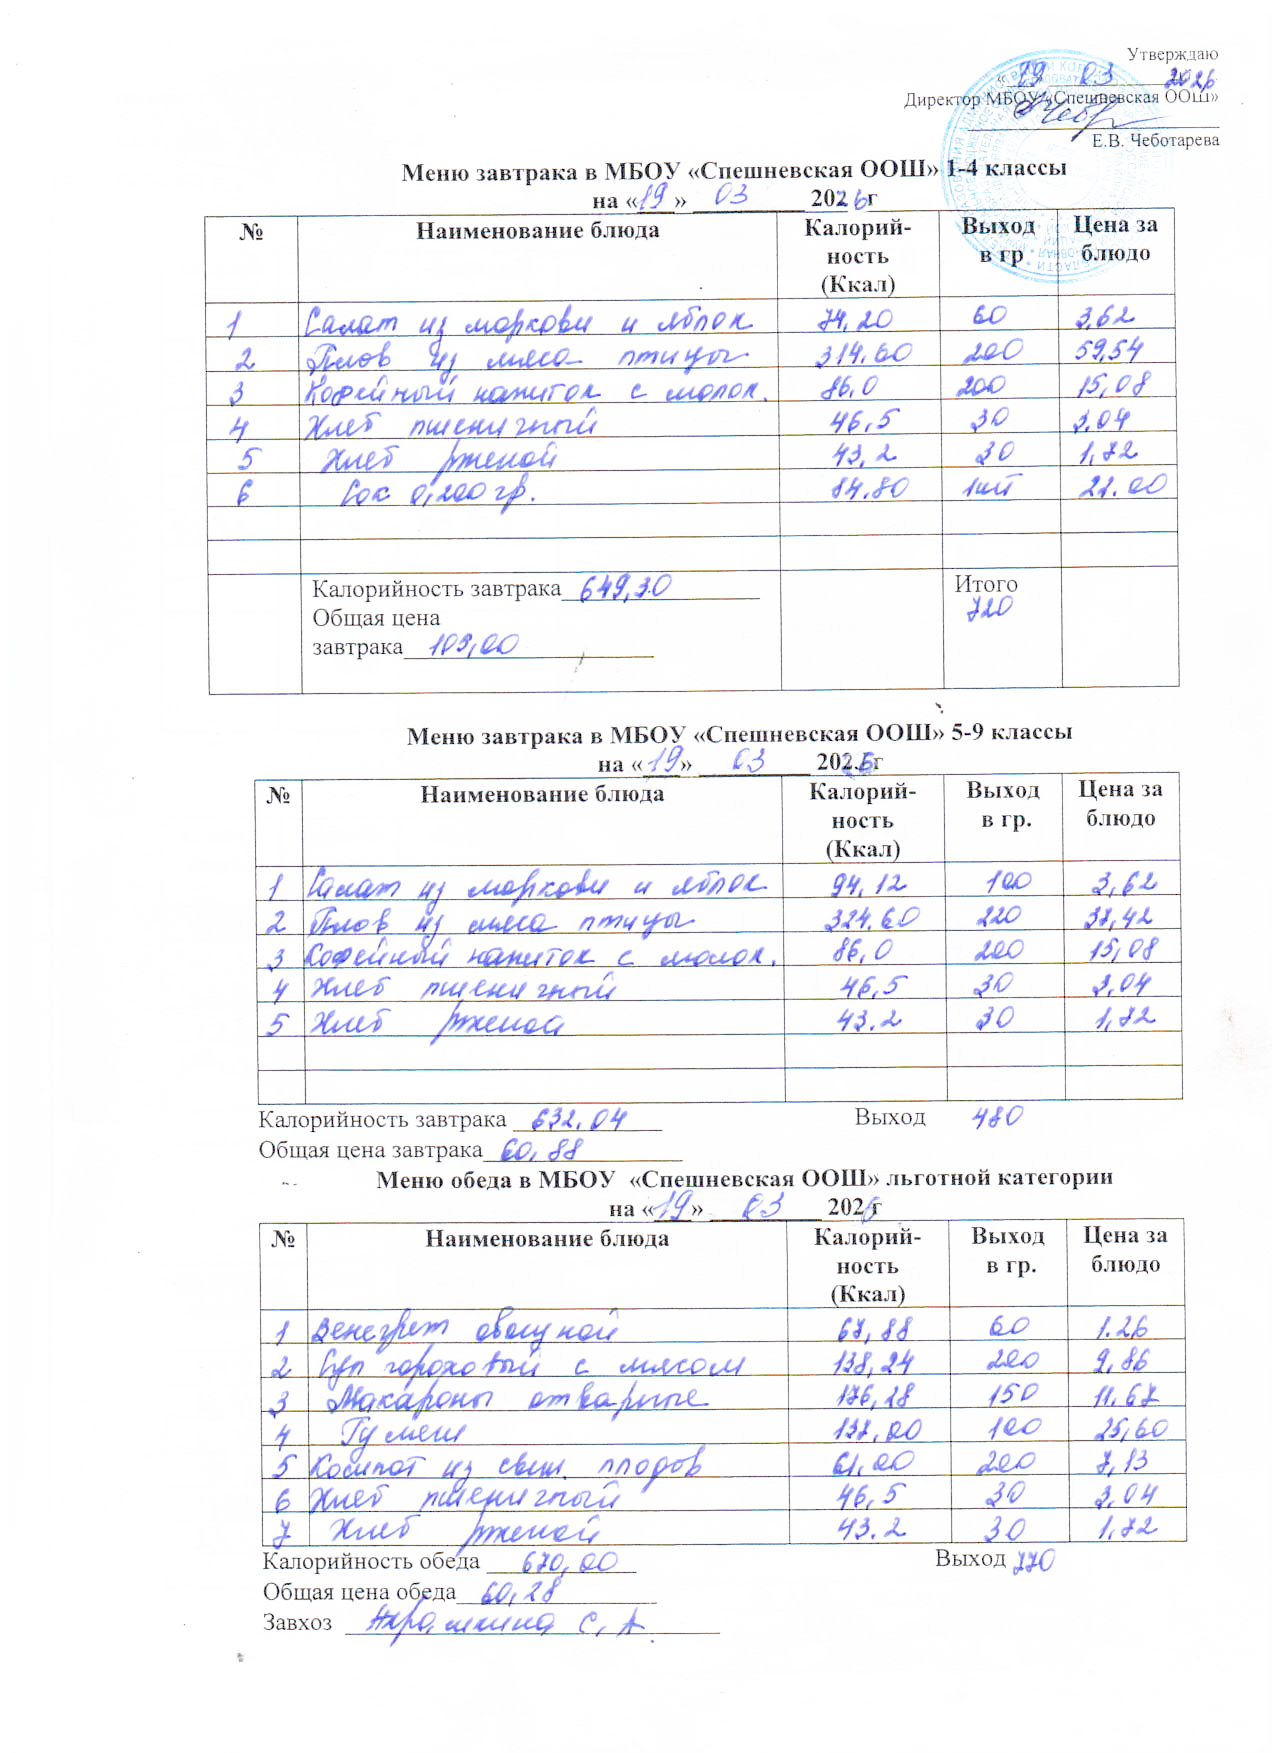 Утверждаю
« 19 » 03 2026
Директор МБОУ «Спешневская ООШ»
Е.В. Чеботарева
Меню завтрака в МБОУ «Спешневская ООШ» 1-4 классы
на «19» 03 2026 г
№ Наименование блюда Калорий-ность (Ккал) Выход в гр Цена за блюдо
1 Салат из моркови и яблок 74,20 60 3,62
2 Плов из мяса птицы 314.60 200 59,54
3 Кофейный напиток с молок. 86,0 200 15,08
4 Хлеб пшеничный 46,5 30 3,04
5 Хлеб ржаной 43,2 30 1,72
6 Сок 0,200 гр. 84.80 1шт 21.00
Калорийность завтрака 649,30 Итого
Общая цена 720
завтрака 103,00
Меню завтрака в МБОУ «Спешневская ООШ» 5-9 классы
на «19» 03 2026 г
№ Наименование блюда Калорий-ность (Ккал) Выход в гр. Цена за блюдо
1 Салат из моркови и яблок 94,12 100 3,62
2 Плов из мяса птицы 324.60 220 37,42
3 Кофейный напиток с молок. 86,0 200 15,08
4 Хлеб пшеничный 46,5 30 3,04
5 Хлеб ржаной 43.2 30 1,72
Калорийность завтрака 632,04 Выход 480
Общая цена завтрака 60,88
Меню обеда в МБОУ «Спешневская ООШ» льготной категории
на «19» 03 2026 г
№ Наименование блюда Калорий-ность (Ккал) Выход в гр. Цена за блюдо
1 Венегрет овощной 67,88 60 1.26
2 Суп гороховый с мясом 138,24 200 9,86
3 Макароны отварные 176,18 150 11.67
4 Гуляш 137,00 100 25,60
5 Компот из свеж. плодов 61.00 200 7,13
6 Хлеб пшеничный 46,5 30 3,04
7 Хлеб ржаной 43.2 30 1,72
Калорийность обеда 670,00 Выход 770
Общая цена обеда 60,28
Завхоз С, А